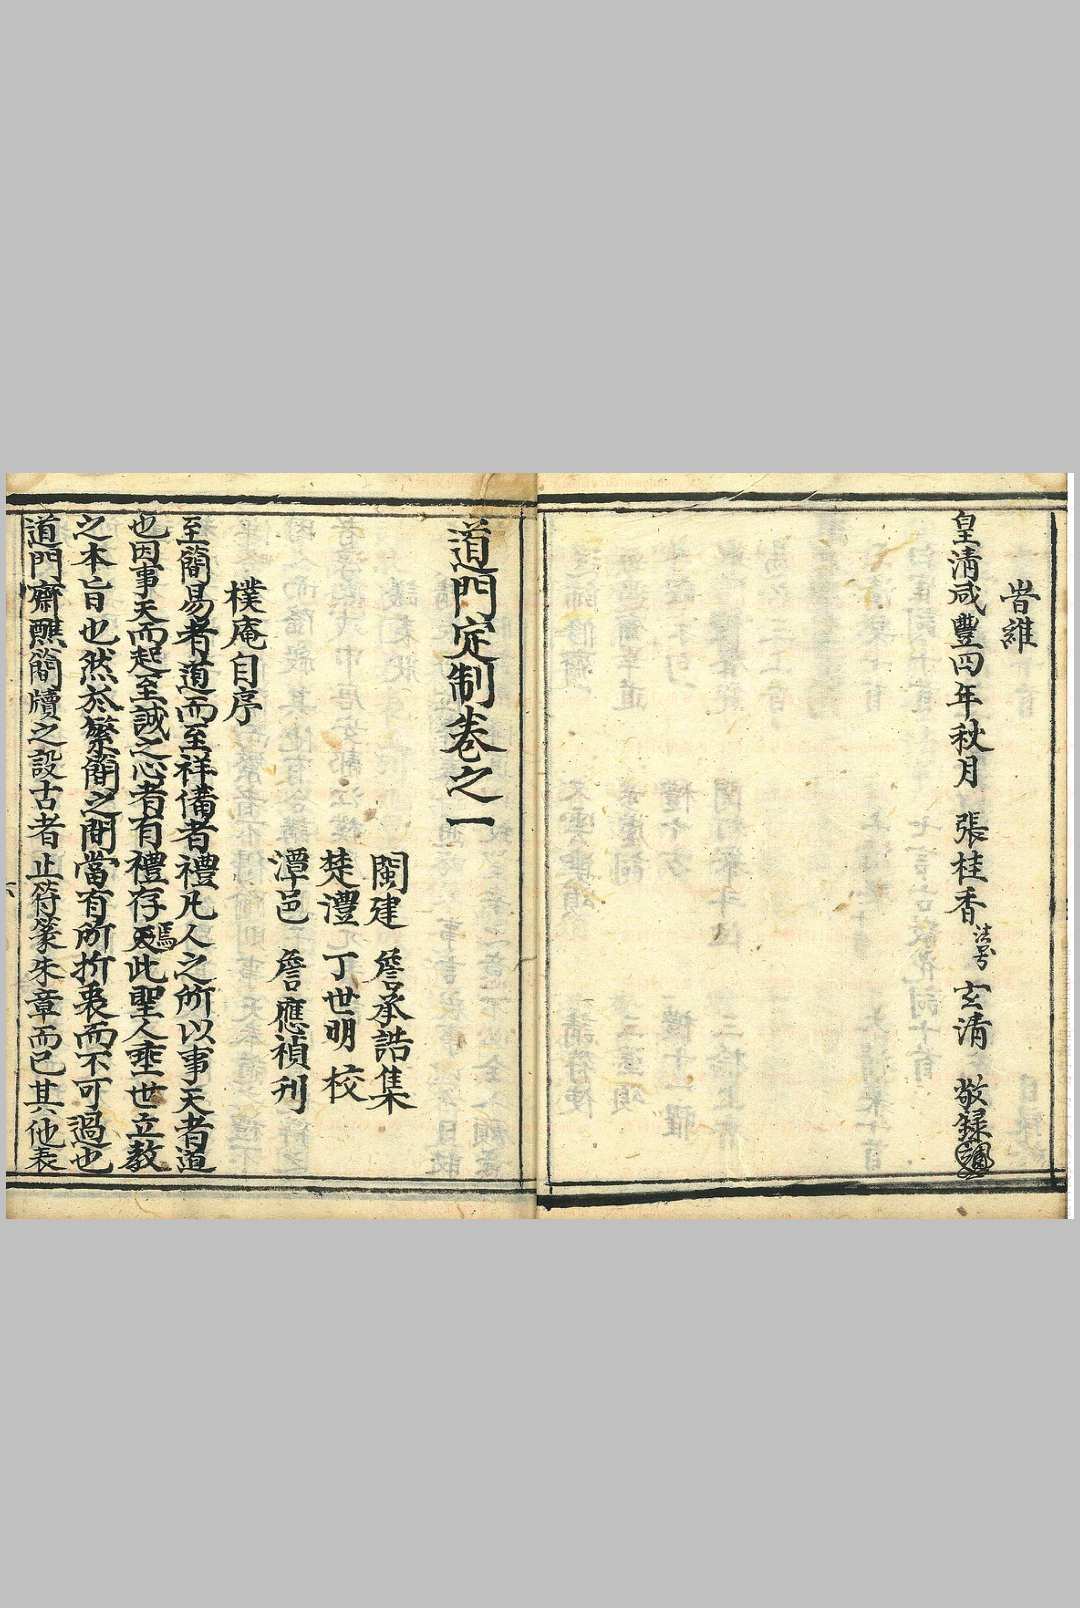 時維
皇清咸豐四年秋月 張桂香 法号 玄清 敬録
道門定制卷之一
閩建 詹承誥集
楚澧 丁世明校
潭邑 詹應禎刊
樸庵自序
至簡易者道而至祥備者禮凡人之所以事天者道
也因事天而起至誠之心者有禮存焉此聖人垂世立教
之本旨也然於繁簡之間當有所折衷而不可過也
道門齋醮簡牘之設古者止符篆朱章而已其他表